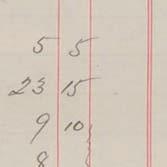 5 5
23 15
9 10
8